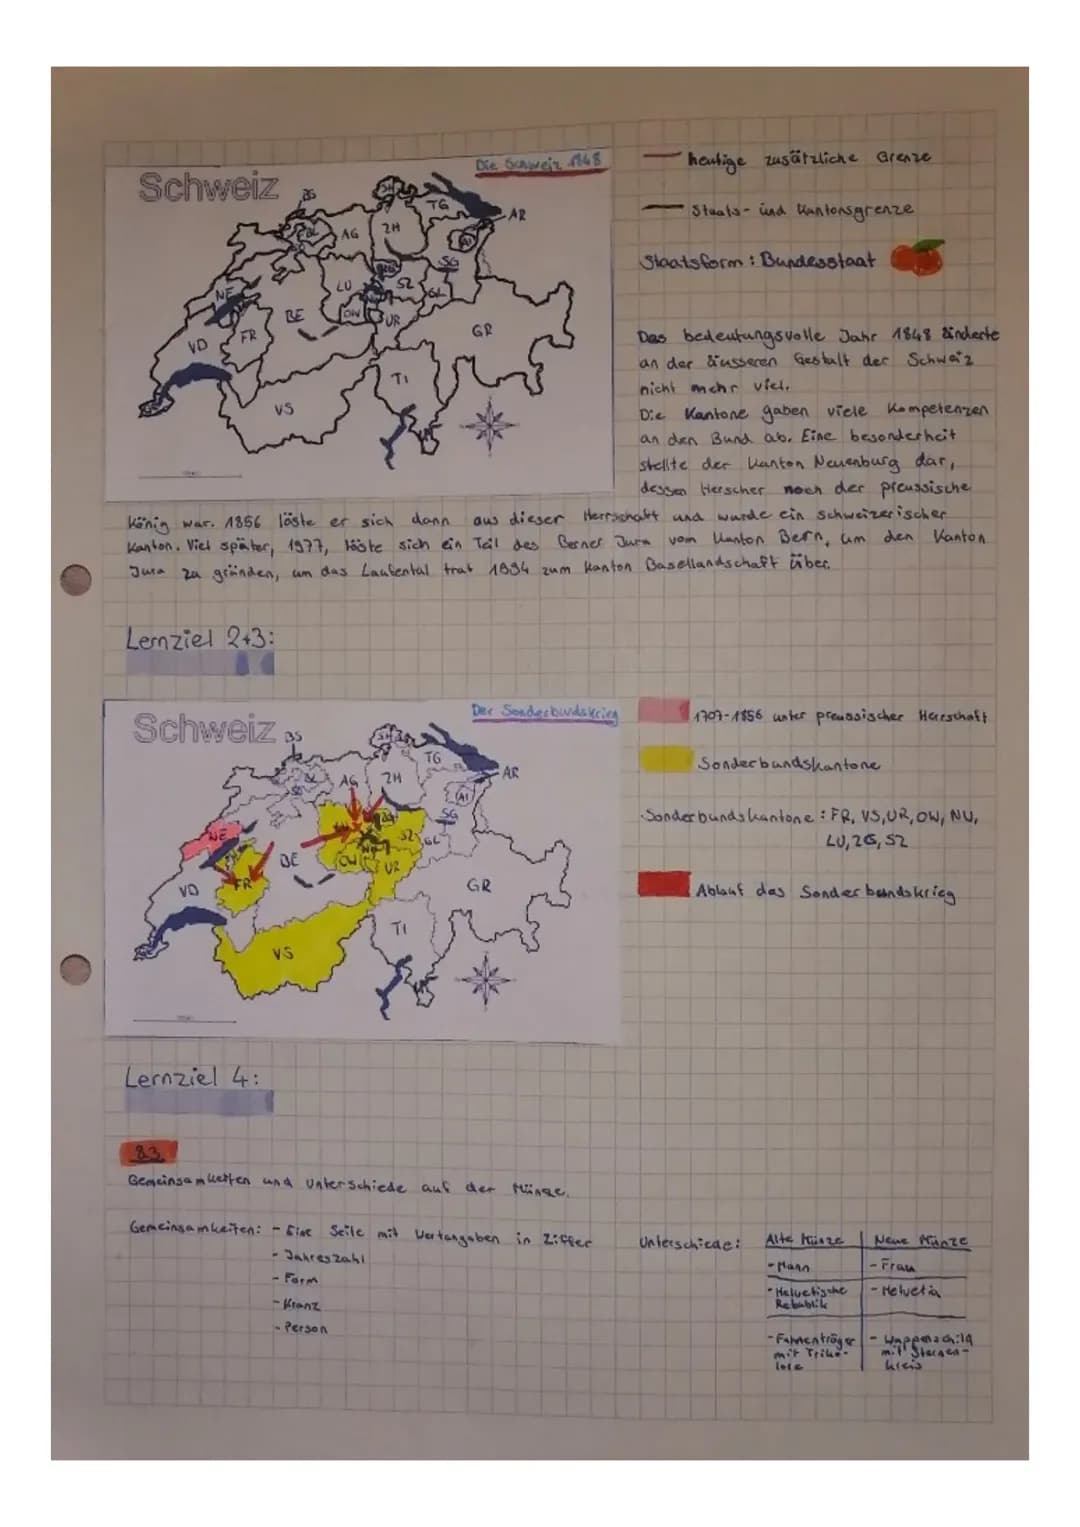 Schweiz
Die Schweiz 1848
BS
SH
TG
AR
BL
AG
ZH
AI
SG
NE
LU
SZ
GL
BE
OW
UR
GR
VD
FR
TI
VS
heutige zusätzliche Grenze
Staats- und Kantonsgrenze
Staatsform: Bundesstaat
Das bedeutungsvolle Jahr 1848 änderte
an der äusseren Gestalt der Schweiz
nicht mehr viel.
Die Kantone gaben viele Kompetenzen
an den Bund ab. Eine besonderheit
stellte der Kanton Neuenburg dar,
dessen Herscher noch der preussische
König war. 1856 löste er sich dann aus dieser Herrschaft und wurde ein schweizerischer
Kanton. Viel später, 1977, löste sich ein Teil des Berner Jura vom Kanton Bern, um den Kanton
Jura zu gründen, um das Laufental trat 1994 zum Kanton Basellandschaft über.
Lernziel 2+3:
Schweiz
Der Sonderbundskrieg
BS
SH
TG
AR
BL
SO
AG
ZH
AI
SG
NE
LU
ZG
SZ
GL
BE
OW
UR
FR
VD
GR
TI
VS
1707-1856 unter preussischer Herrschaft
Sonderbundskantone
Sonderbundskantone: FR, VS, UR, OW, NW,
LU, ZG, SZ
Ablauf das Sonderbundskrieg
Lernziel 4:
83
Gemeinsamkeiten und Unterschiede auf der Münze.
Gemeinsamkeiten: - Eine Seite mit Wertangaben in Ziffer
- Jahreszahl
- Form
- Kranz
- Person
Unterschiede:
Alte Münze | Neue Münze
- Mann | - Frau
- Helvetische | - Helvetia
Rebublik
- Fahnenträger | - Wappenschild
mit Triko- | mit Sternen-
lore | kreis